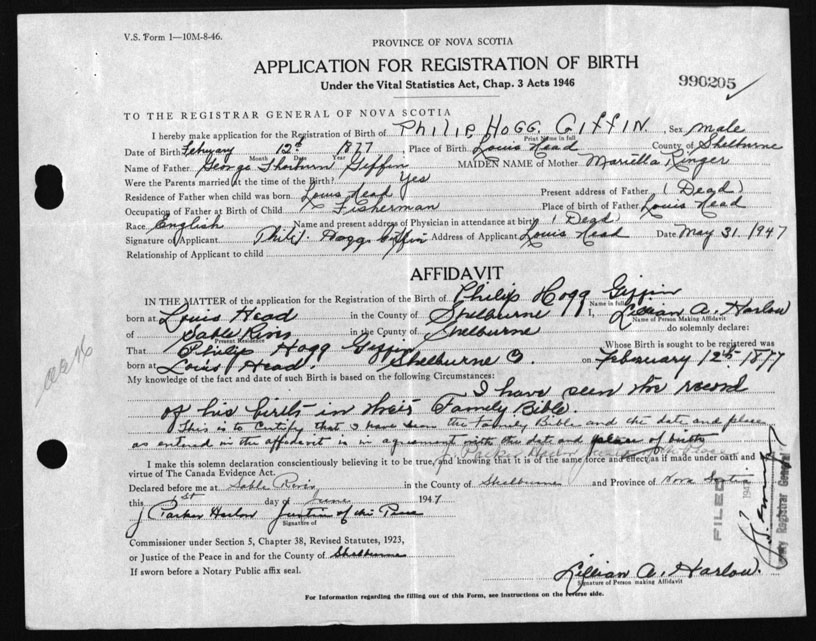 V.S. Form 1—10M-8-46.
PROVINCE OF NOVA SCOTIA
APPLICATION FOR REGISTRATION OF BIRTH
Under the Vital Statistics Act, Chap. 3 Acts 1946
990205
TO THE REGISTRAR GENERAL OF NOVA SCOTIA
I hereby make application for the Registration of Birth of PHILIP HOGG GIFFIN Sex Male
Print Name in full
Date of Birth February 12th 1877, Place of Birth Louis Head County of Shelburne
Month Date Year
Name of Father George Thorburn Giffin MAIDEN NAME of Mother Mariella Ringer
Were the Parents married at the time of the Birth? Yes
Residence of Father when child was born Louis Head Present address of Father (Dead)
Occupation of Father at Birth of Child Fisherman Place of birth of Father Louis Head
Race English Name and present address of Physician in attendance at birth (Dead)
Signature of Applicant Philip Hogg Giffin Address of Applicant Louis Head Date May 31. 1947
Relationship of Applicant to child
AFFIDAVIT
IN THE MATTER of the application for the Registration of the Birth of Philip Hogg Giffin
Name in full
born at Louis Head in the County of Shelburne I, Lillian A. Harlow
Name of Person Making Affidavit
of Sable River in the County of Shelburne do solemnly declare:
Present Residence
That Philip Hogg Giffin Whose Birth is sought to be registered was
born at Louis Head. Shelburne Co. on February 12th 1877
My knowledge of the fact and date of such Birth is based on the following Circumstances:
I have seen the record
of his birth in their Family Bible.
This is to certify that I have seen the Family Bible and the date and place
as entered in the affidavit is in agreement with the date and place of birth
J. Parker Harlow Justice of the Peace
I make this solemn declaration conscientiously believing it to be true, and knowing that it is of the same force and effect as if made under oath and by
virtue of The Canada Evidence Act.
Declared before me at Sable River in the County of Shelburne and Province of Nova Scotia
this 1st day of June 1947
J Parker Harlow Justice of the Peace
Signature of
Commissioner under Section 5, Chapter 38, Revised Statutes, 1923,
or Justice of the Peace in and for the County of Shelburne
If sworn before a Notary Public affix seal.
Lillian A. Harlow.
Signature of Person making Affidavit
For Information regarding the filling out of this Form, see instructions on the reverse side.
FILED
Registrar General